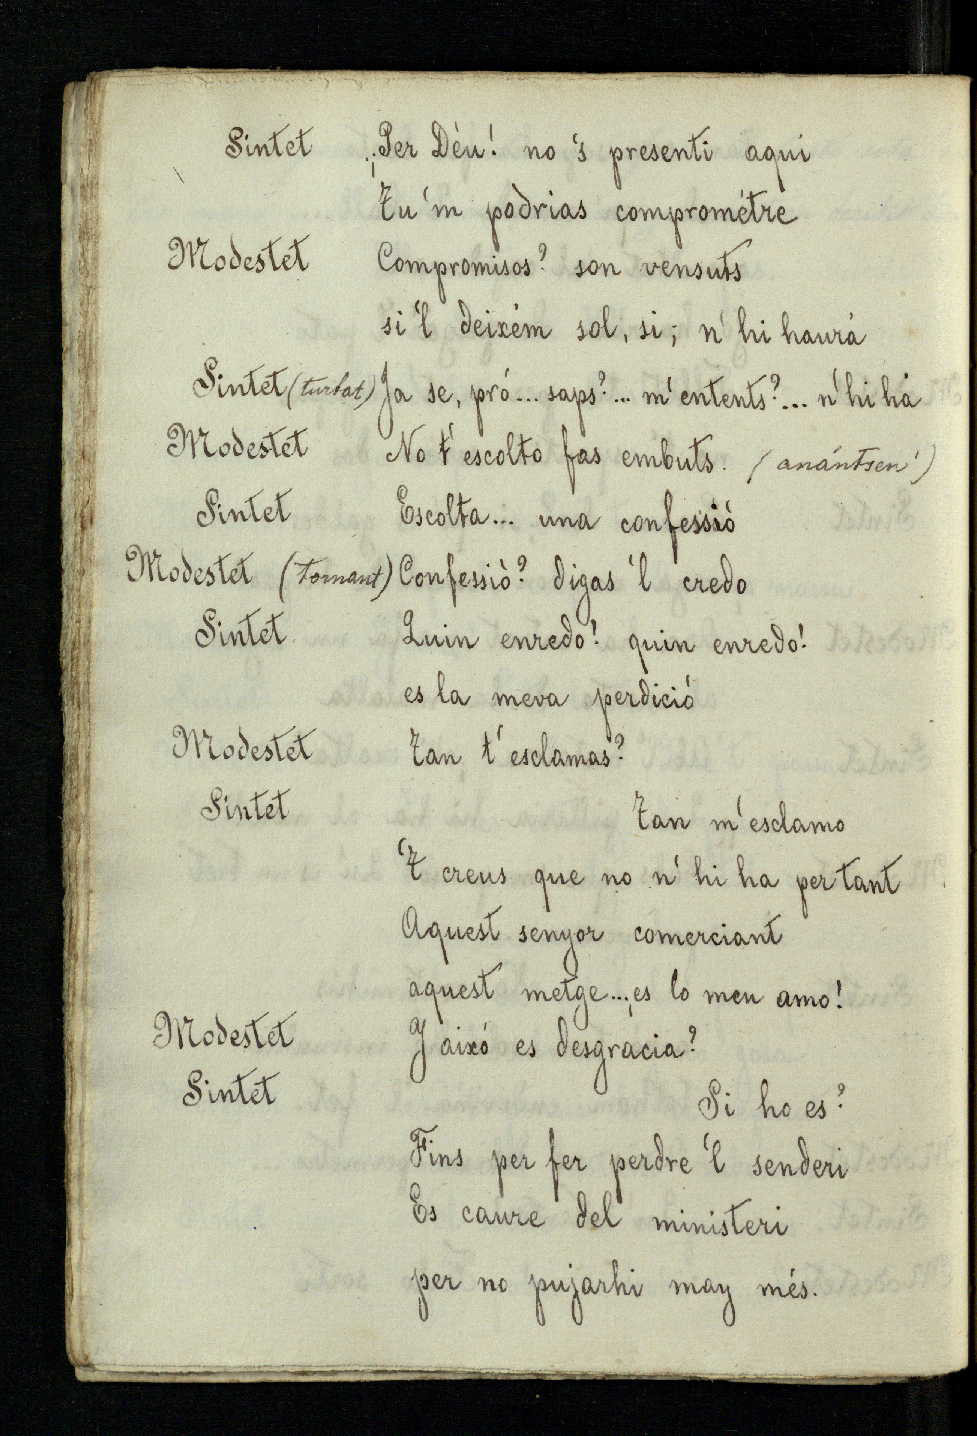 Sintet ¡Per Déu! no 's presenti aqui
Tu 'm podrias comprométre
Modestet Compromisos? son vensuts
si 'l deixém sol, si; n'hi haurá
Sintet (turbat) Ja se, pró... saps?... m'entents?... n'hi há
Modestet No t'escolto fas embuts. (anántsen')
Sintet Escolta... una confessió
Modestet (tornant) Confessiò? digas 'l credo
Sintet Quin enredo! quin enredo!
es la meva perdició
Modestet Tan t'esclamas?
Sintet Tan m'esclamo
'T creus que no n'hi ha per tant
Aquest senyor comerciant
aquest metge...¡es lo meu amo!
Modestet Y aixó es desgracia?
Sintet Si ho es?
Fins per fer perdre 'l senderi
Es caure del ministeri
per no pujarhi may més.